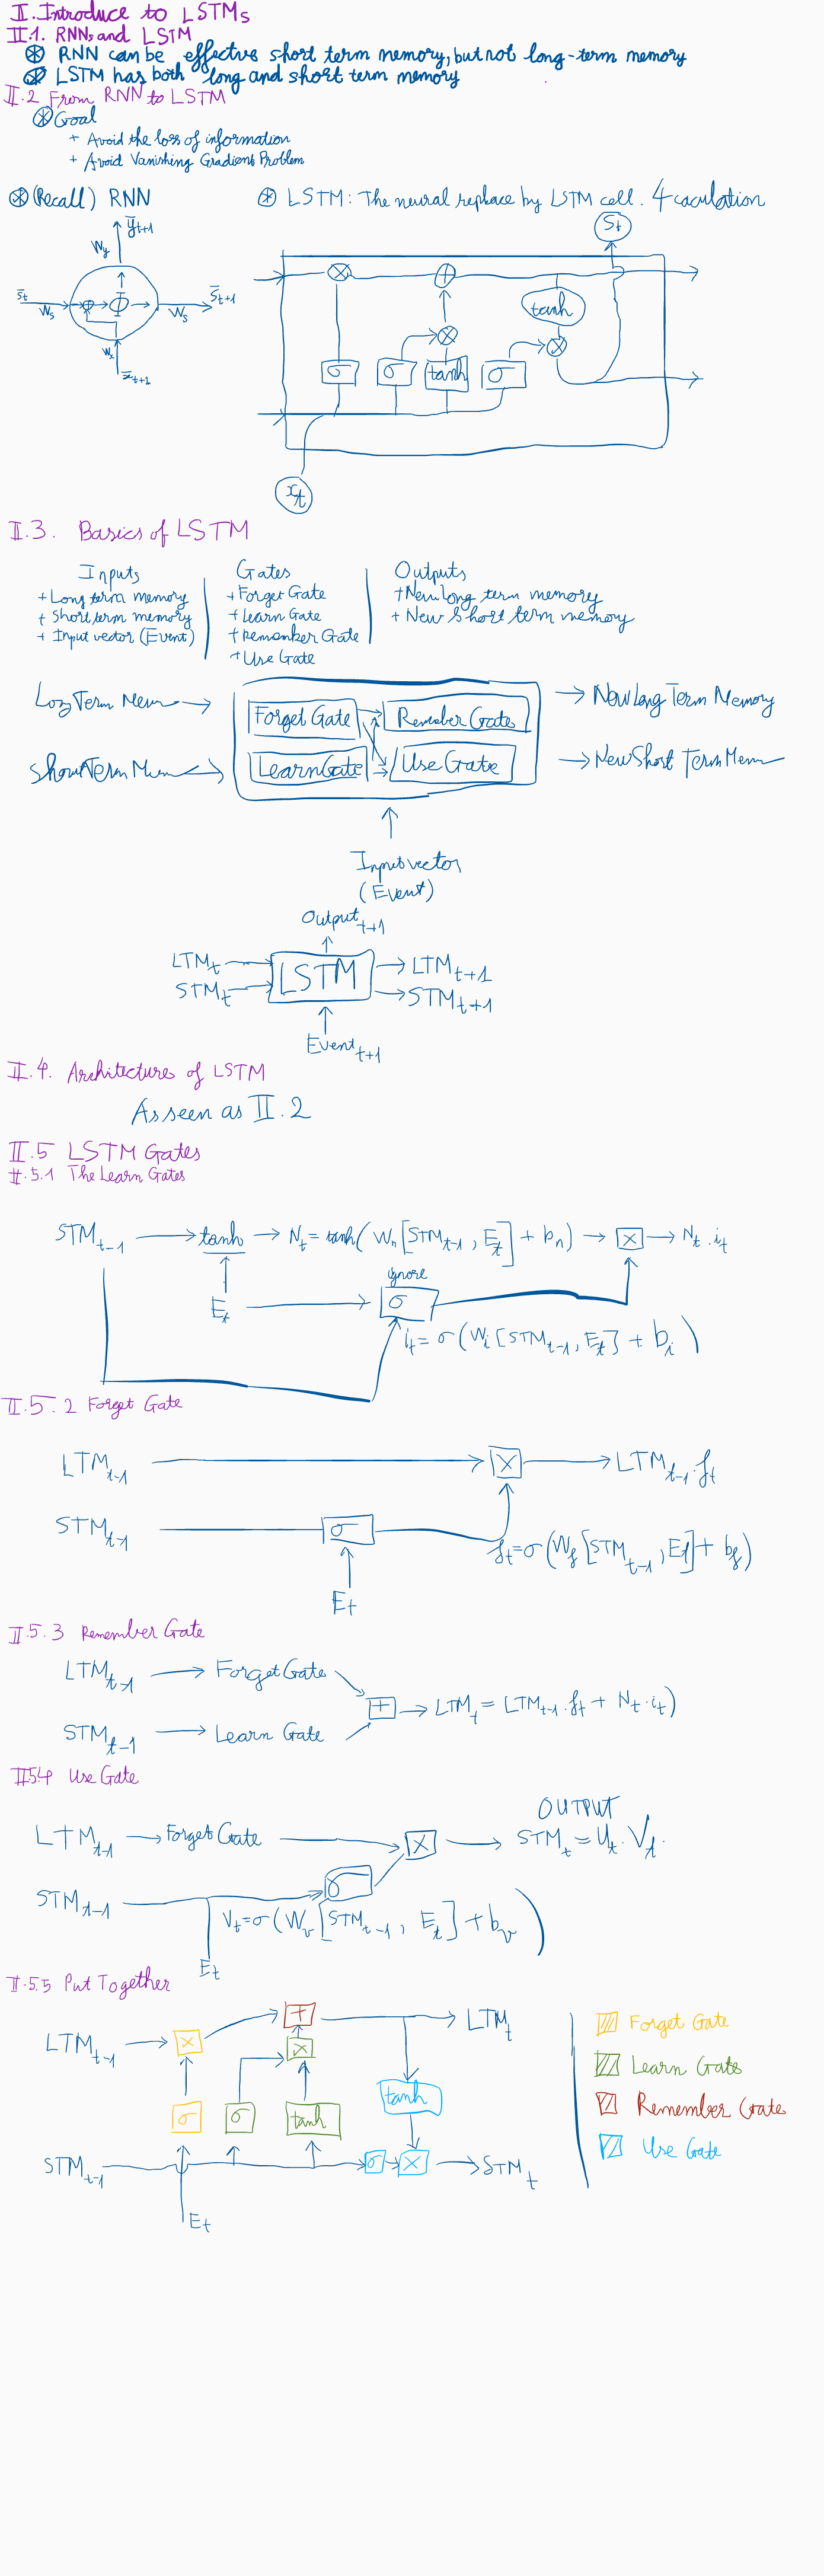 II. Introduce to LSTMs
II.1. RNNs and LSTM
⊛ RNN can be effective short term memory, but not long-term memory
⊛ LSTM has both long and short term memory
II.2 From RNN to LSTM
⊛ Goal
+ Avoid the loss of information
+ Avoid Vanishing Gradient Problem
⊛ (Recall) RNN
⊛ LSTM: The neural replace by LSTM cell. 4 caculation
y̅t+1
Wy
s̅t
Ws
Φ
Ws
s̅t+1
Wx
x̅t+1
St
×
+
tanh
×
×
σ
σ
tanh
σ
xt
II.3. Basics of LSTM
Inputs
+ Long term memory
+ Short term memory
+ Input vector (Event)
Gates
+ Forget Gate
+ Learn Gate
+ Remember Gate
+ Use Gate
Outputs
+ New long term memory
+ New Short term memory
Long Term Mem
Short Term Mem
Forget Gate
Remember Gate
Learn Gate
Use Gate
New Long Term Memory
New Short Term Mem
Input vector
(Event)
Output t+1
LTMt
STMt
LSTM
LTMt+1
STMt+1
Event t+1
II.4. Architecture of LSTM
As seen as II.2
II.5 LSTM Gates
II.5.1 The Learn Gates
STMt-1 → tanh → Nt = tanh(Wn[STMt-1, Et] + bn) → × → Nt . it
ignore
Et
σ
it = σ(Wi[STMt-1, Et] + bi)
II.5.2 Forget Gate
LTMt-1 → × → LTMt-1 . ft
STMt-1
σ
ft = σ(Wf[STMt-1, Et] + bf)
Et
II.5.3 Remember Gate
LTMt-1 → Forget Gate
+ → LTMt = LTMt-1 . ft + Nt . it)
STMt-1 → Learn Gate
II.5.4 Use Gate
OUTPUT
LTMt-1 → Forget Gate → × → STMt = Ut . Vt.
STMt-1
σ
Vt = σ(Wv[STMt-1, Et] + bv)
Et
II.5.5 Put Together
LTMt-1
×
+
LTMt
×
σ
σ
tanh
tanh
STMt-1
σ
×
STMt
Et
Forget Gate
Learn Gate
Remember Gate
Use Gate